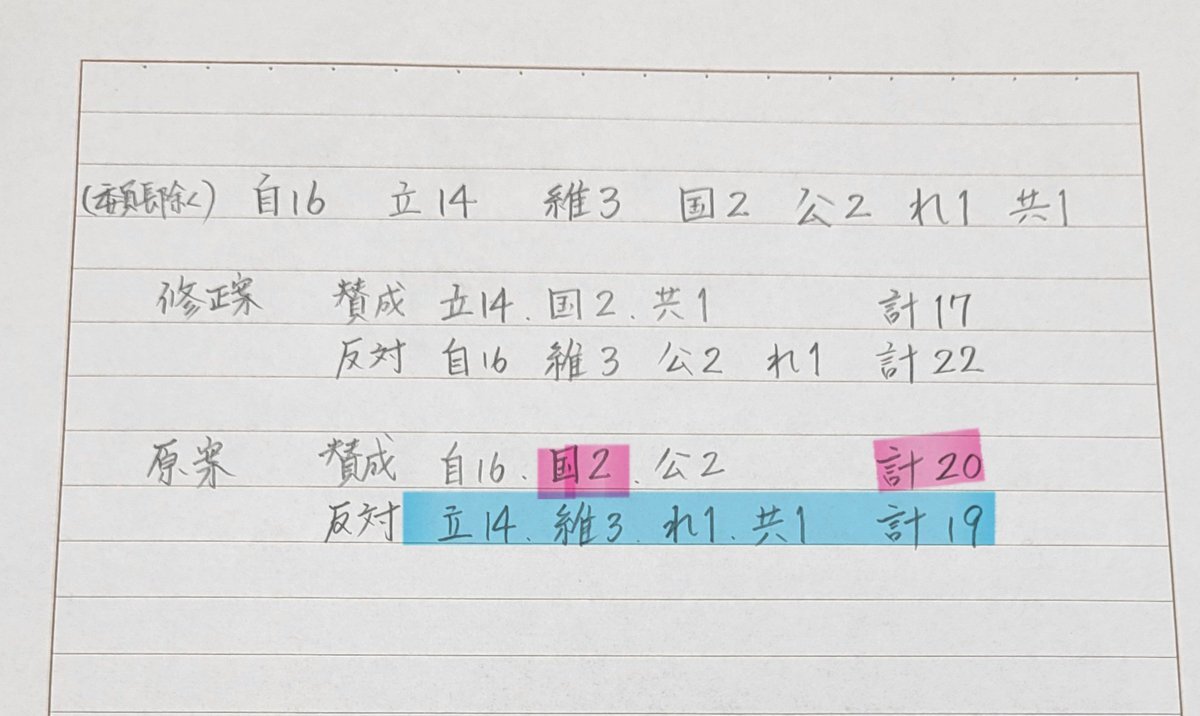 (委員長除く) 自16 立14 維3 国2 公2 れ1 共1
修正案 賛成 立14. 国2. 共1 計17
反対 自16 維3 公2 れ1 計22
原案 賛成 自16. 国2. 公2 計20
反対 立14. 維3. れ1. 共1 計19